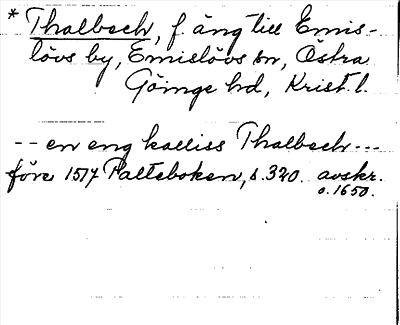 * Thalbech, f äng till Emis-
lövs by, Emislövs sn, Östra
Göinge hd, Krist. l.
-- en eng kalliss Thalbech ---
före 1517 Palteboken, s. 320. avskr.
o. 1650.